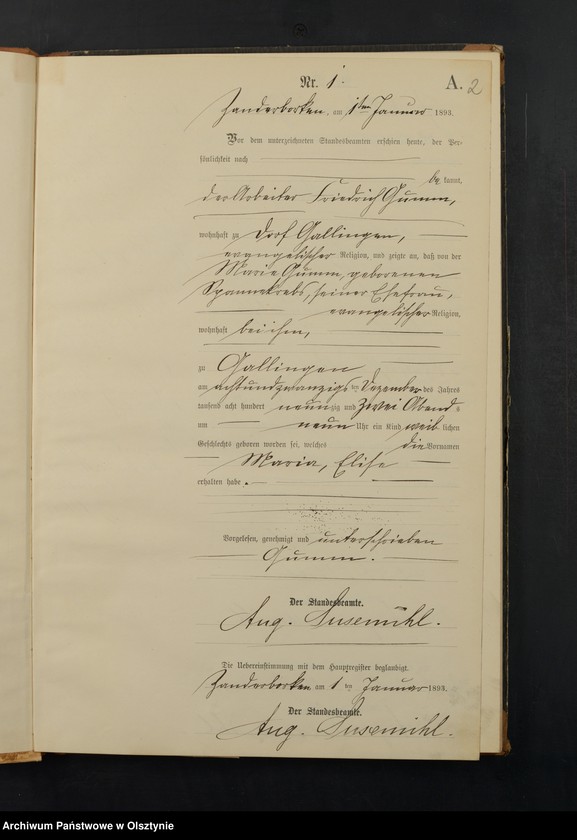 Nr. 1.
A. 2
Zanderborken, am 1ten Januar 1893.
Vor dem unterzeichneten Standesbeamten erschien heute, der Per-
sönlichkeit nach
be kannt,
der Arbeiter Friedrich Gumm,
wohnhaft zu Dorf Gallingen,
evangelischer Religion, und zeigte an, daß von der
Marie Gumm, geborenen
Spannekrebs, seiner Ehefrau,
evangelischer Religion,
wohnhaft bei ihm,
zu Gallingen
am achtundzwanzigsten Dezember des Jahres
tausend acht hundert neunzig und zwei Abends
um neun Uhr ein Kind weiblichen
Geschlechts geboren worden sei, welches die Vornamen
Maria, Elise
erhalten habe.
Vorgelesen, genehmigt und unterschrieben
Gumm.
Der Standesbeamte.
Aug. Susemihl.
Die Uebereinstimmung mit dem Hauptregister beglaubigt.
Zanderborken am 1ten Januar 1893.
Der Standesbeamte.
Aug. Susemihl.
Archiwum Państwowe w Olsztynie